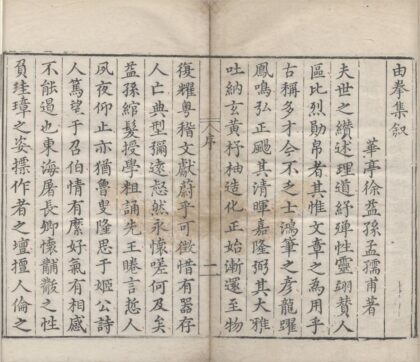 由拳集叙
華亭徐益孫孟孺甫著
夫世之纘述理道紓殫性靈翊贊人
區比烈勛帛者其惟文章之為用乎
古稱多才今不乏士鴻筆之彥龍躍
鳳鳴弘正颺其清暉嘉隆弼其大雅
吐納玄黃杼柚造化正始漸還至物
序
一
復耀粤稽文獻蔚乎可徵惜有器存
人亡典型彌遠愾然永懷嗟何及矣
益孫綰髮授學粗誦先王睠言悊人
夙夜仰止亦猶魯叟隆思于姬公詩
人篤望于召伯情有縻好氣有相感
不能遏也東海屠長卿懷黼黻之性
負珪璋之姿操作者之壇擅人倫之